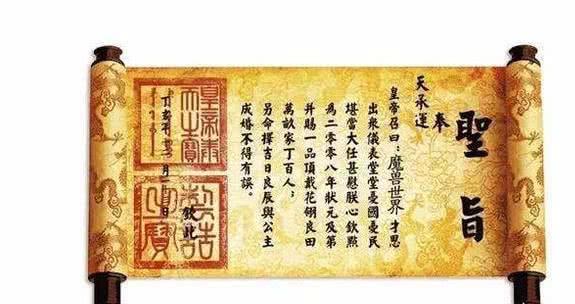 聖旨
奉
天承運
皇帝召曰:魔兽世界才思
出衆儀表堂堂憂國憂民
堪當大任甚慰朕心欽點
為二零零八年狀元及第
并賜一品頂戴花翎良田
萬畝家丁百人;
另命擇吉日良辰與公主
成婚不得有誤。
欽此
皇帝奉
天之寶
制誥
之寶